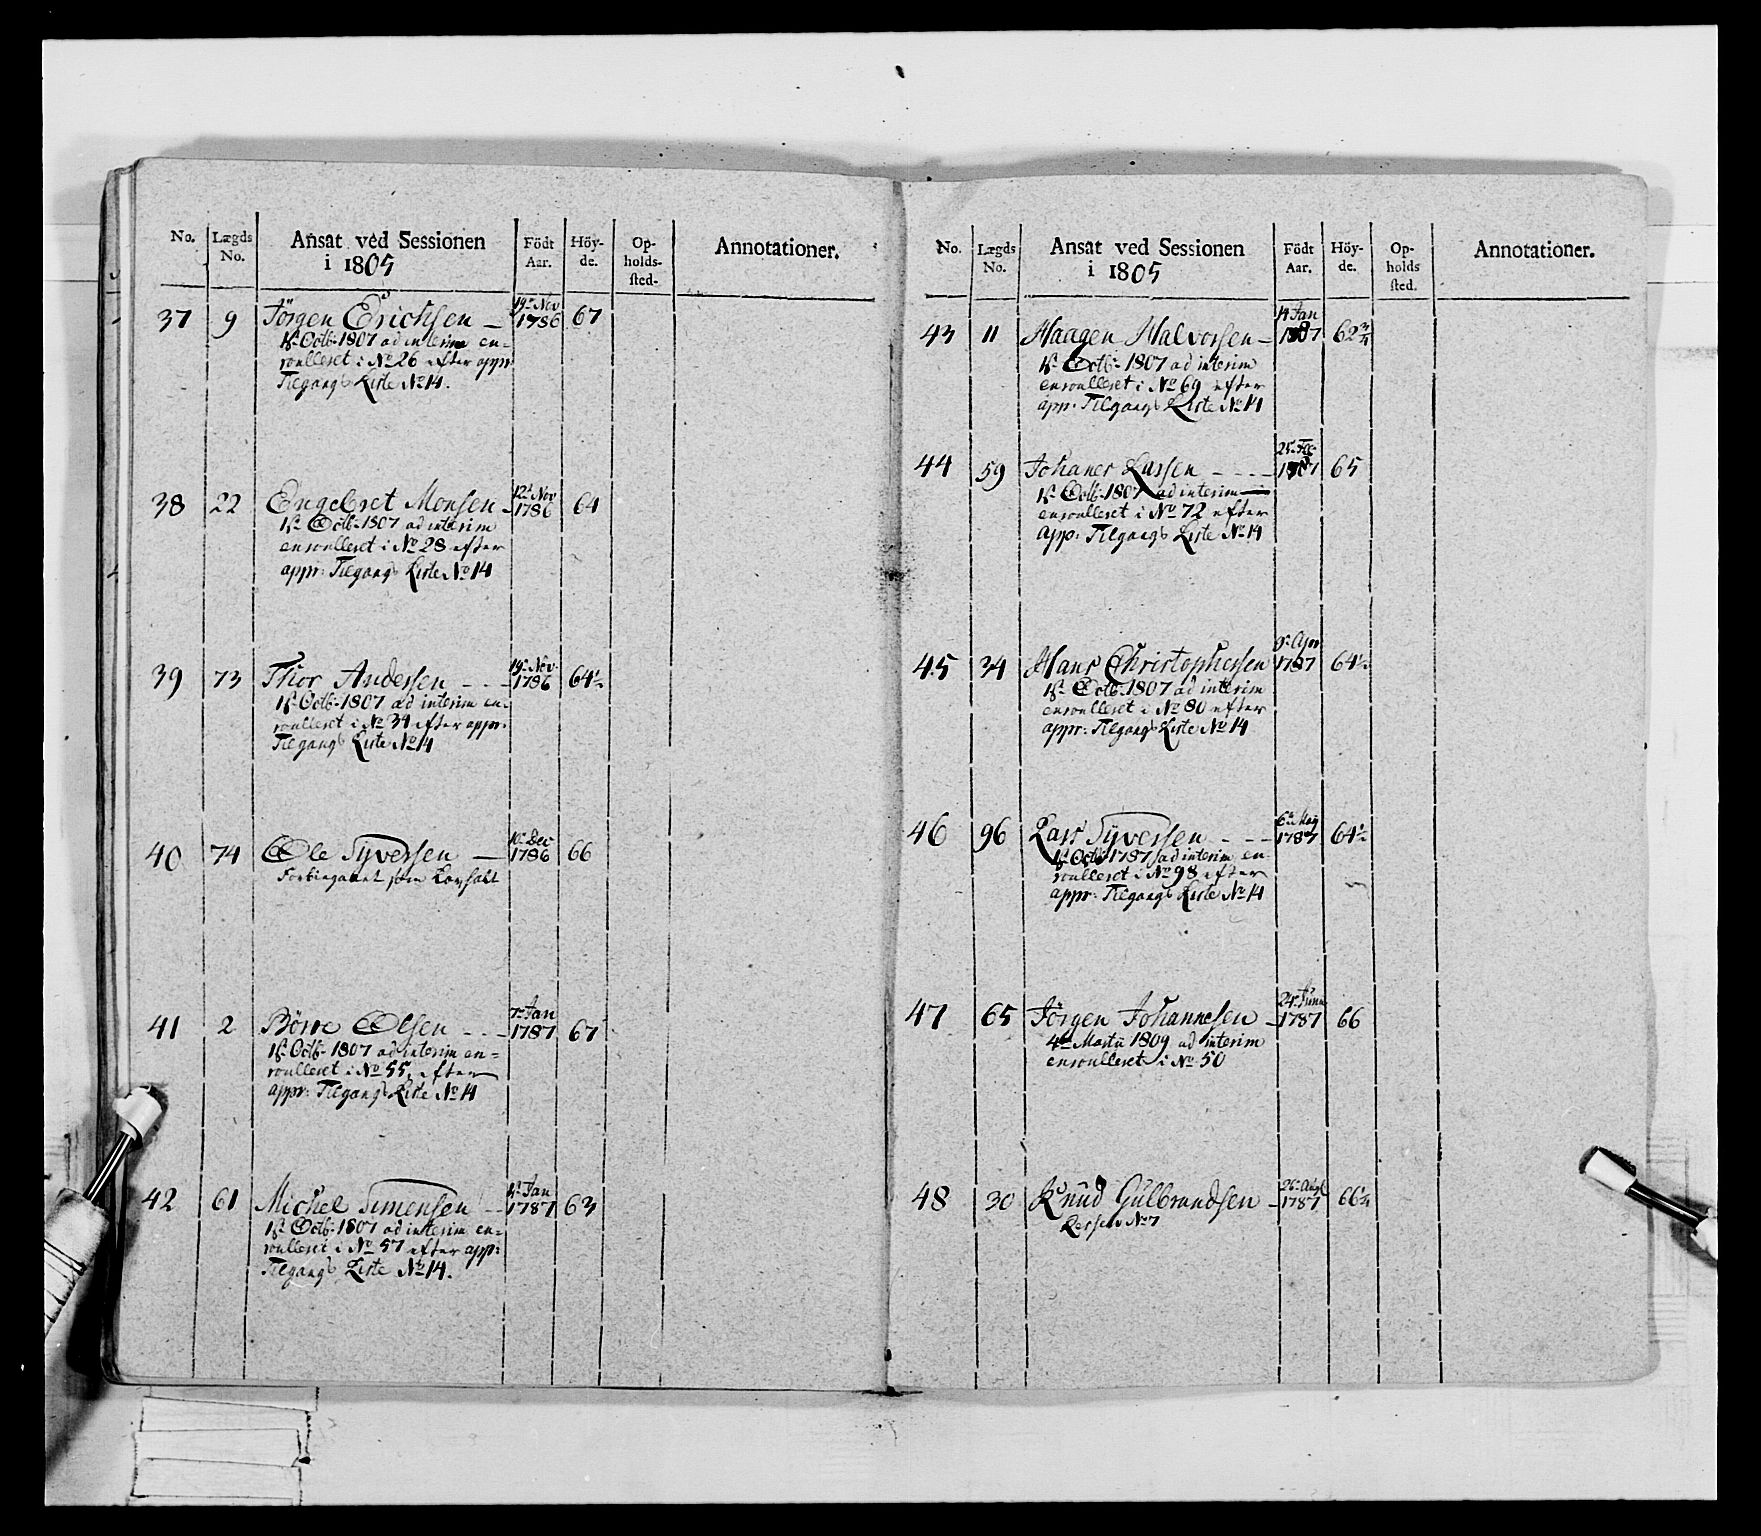 No. Lægds No. Ansat ved Sessionen i 1805 Födt Aar. Höy-de. Op-holds-sted. Annotationer.
37 9 Jörgen Erichsen 19de Nov 1786 67
Octb. 1807 ad interim en-
roulleret i No 26 efter appr
Tilgangs Liste No 14.
38 22 Engebret Monsen 12de Nov 1786 64
Octb. 1807 ad interim
enroulleret i No 28 efter
appr: Tilgangs Liste No 14
39 73 Thor Andersen 19de Nov. 1786 64½
Octb. 1807 ad interim en-
roulleret i No 34 efter appr.
Tilgangs Liste No 14
40 74 Ole Syversen Dec 1786 66
Forbigaaet som
41 2 Börre Olsen 7de Jan 1787 67
Octb. 1807 ad interim en=
roulleret i No 55, efter
appr: Tilgangs Liste No 14
42 61 Michel Simensen Jan 1787 63
Octb. 1807 ad interim en=
roulleret i No 57 efter appr:
Tilgangs Liste No 14.
No. Lægds No. Ansat ved Sessionen i 1805 Födt Aar. Höy-de. Op-holds sted. Annotationer.
43 11 Haagen Halvorsen Jan 1787 62¾
Octb. 1807 ad interim
enroulleret i No 69 efter
appr. Tilgangs Liste No 14
44 59 Johanes Larsen Feb. 1787 65
Octb. 1807 ad interim
enroulleret i No 72 efter
appr: Tilgangs Liste No 14
45 34 Hans Christophersen 9de Apr 1787 64½
Octb. 1807 ad interim
enroulleret i No 80 efter
appr: Tilgangs Liste No 14
46 96 Lars Syversen 6te May 1787 64½
Octb. 1787 ad interim en-
roulleret i No 98 efter
appr. Tilgangs Liste No 14
47 65 Jörgen Johannesen 24de Juni 1787 66
4de Martii 1809 ad interim
enroulleret i No 50
48 30 Knud Gulbrandsen 1787 66¼
No 7